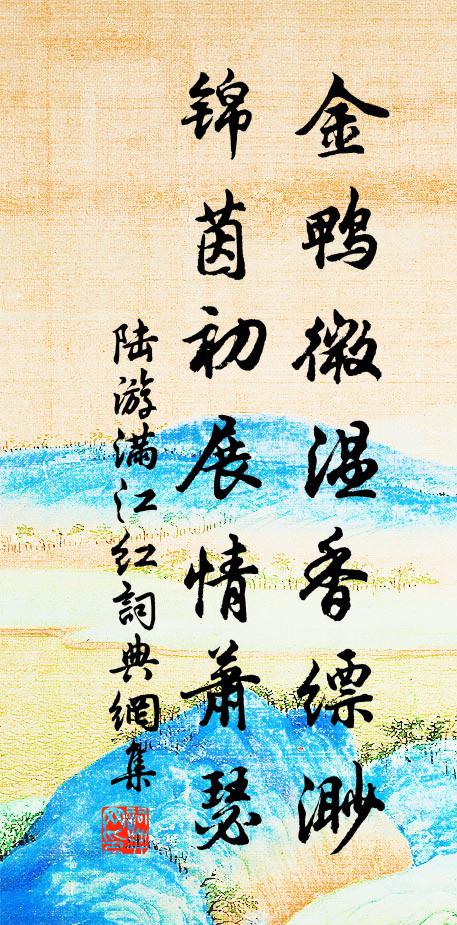 金鸭微温香缥渺
锦茵初展情萧瑟
陆游满江红詞典網集